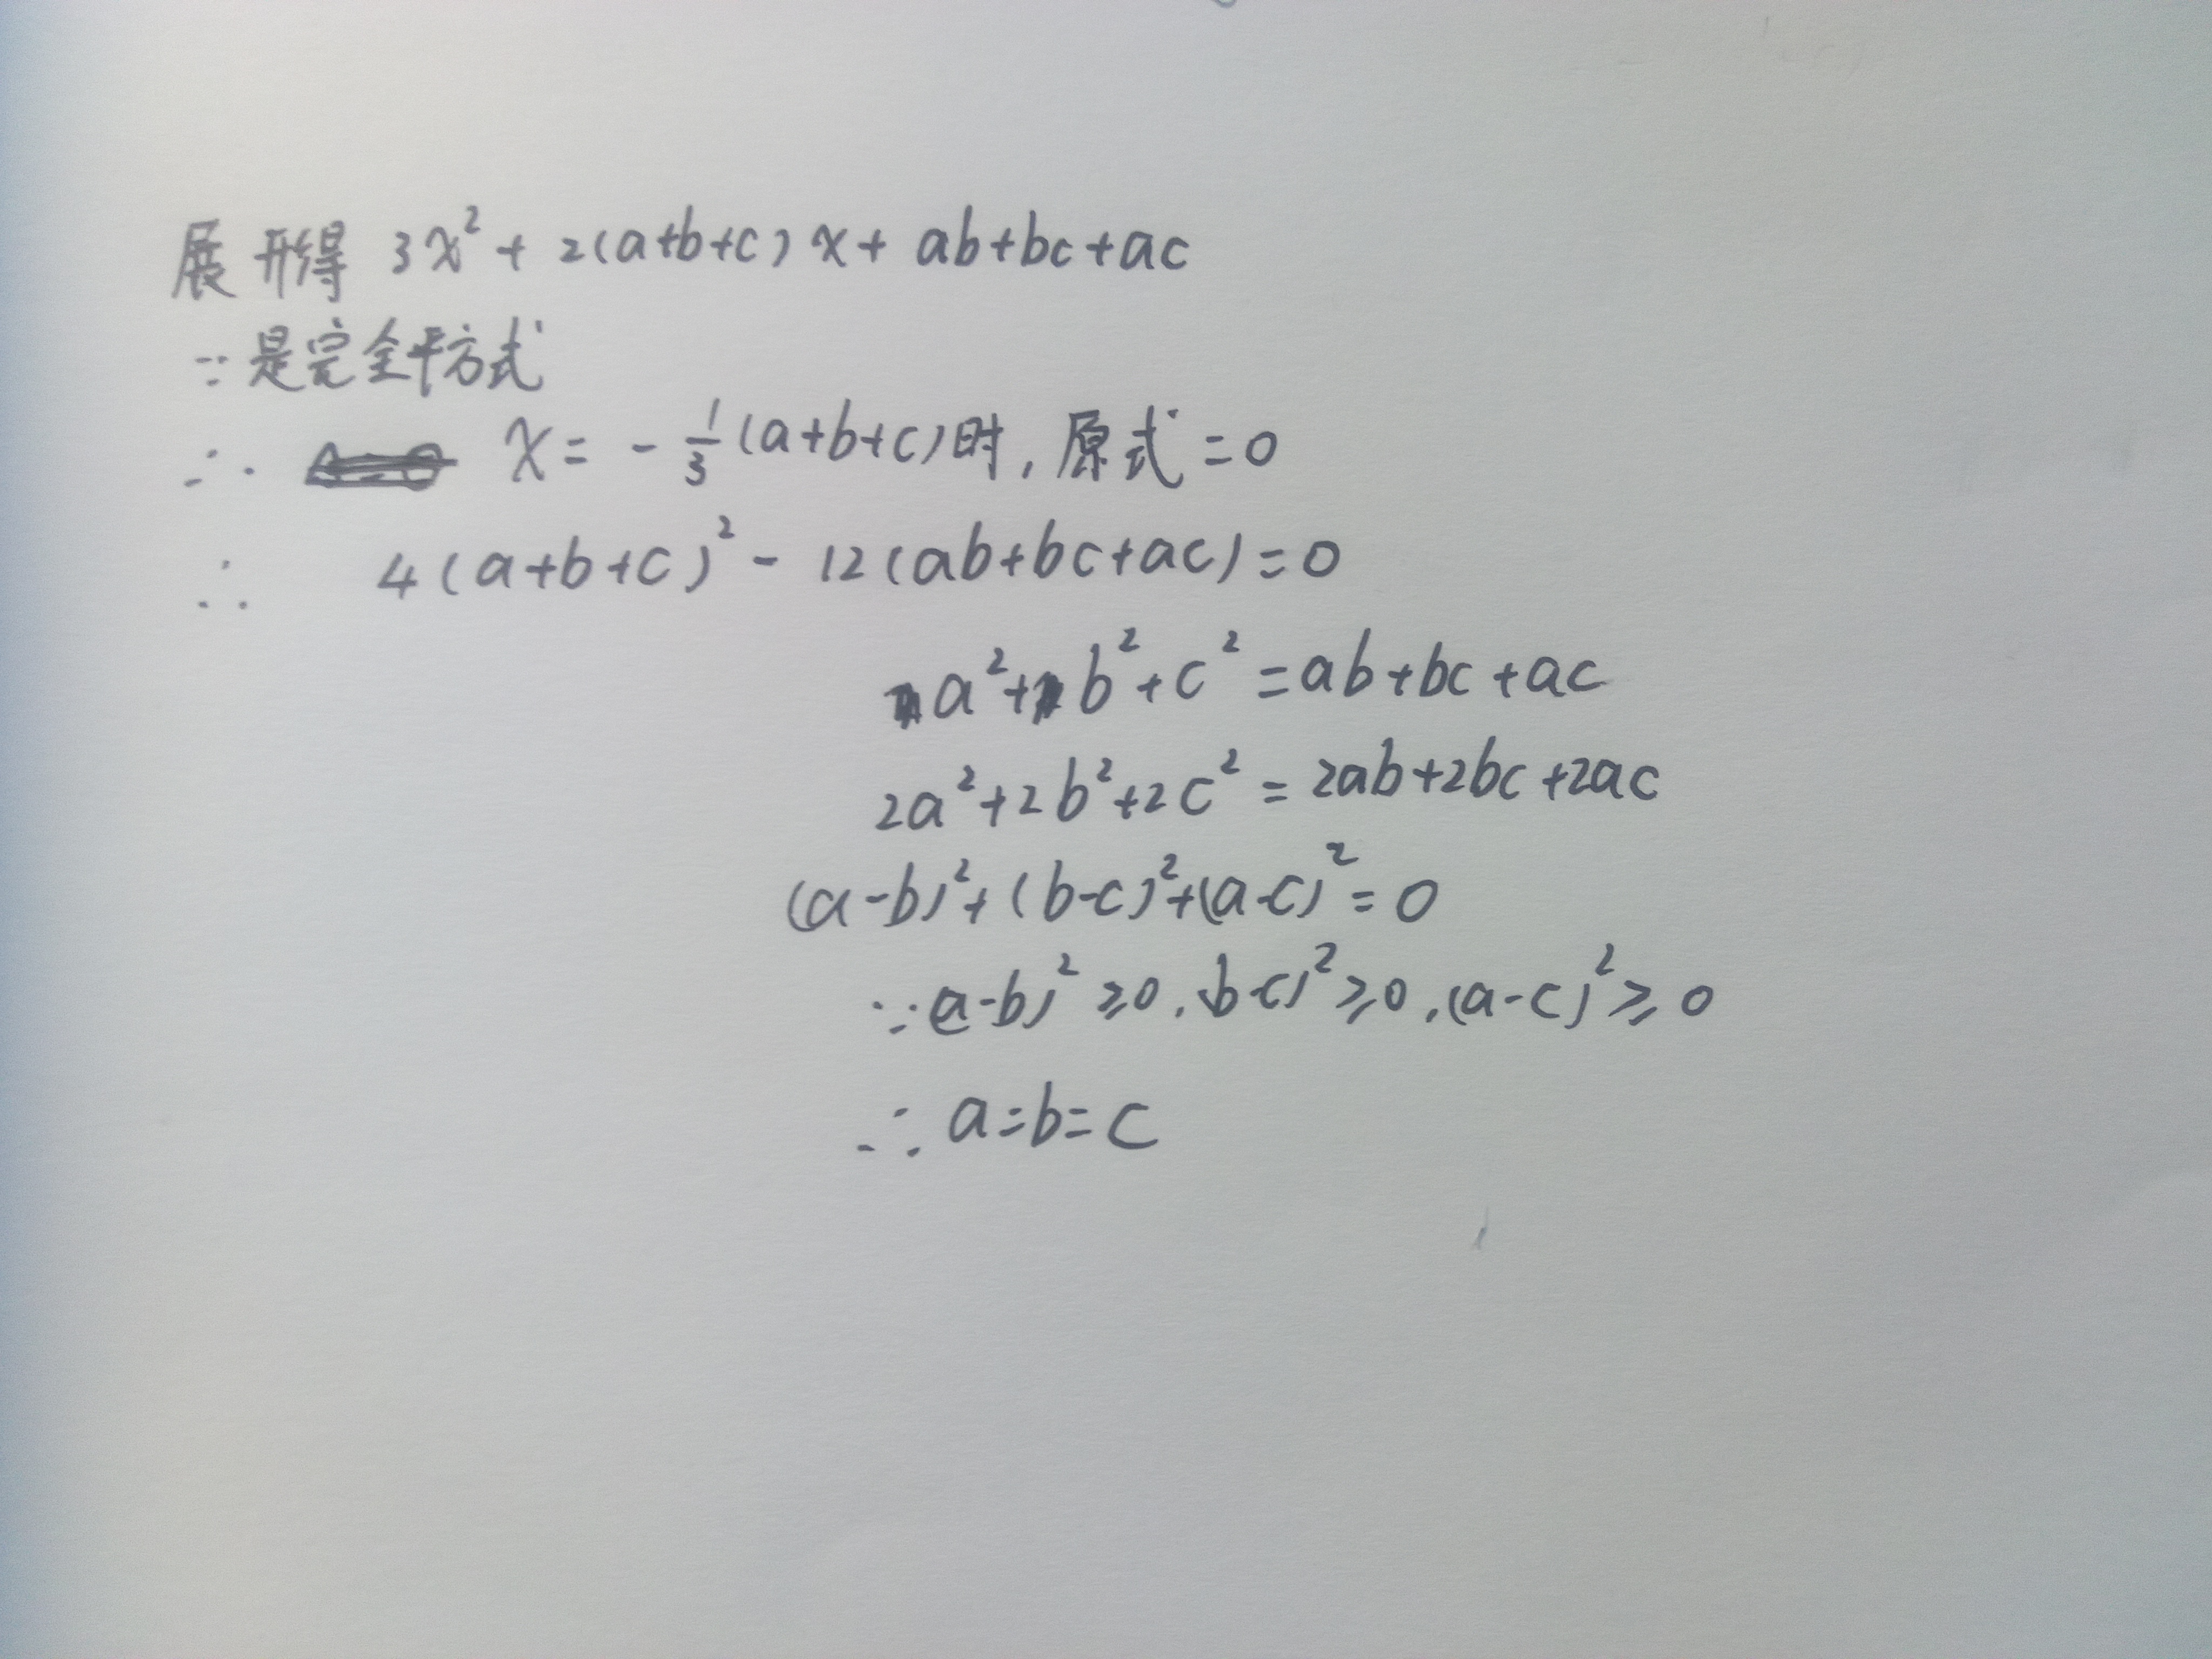 展形得 3x²+2(a+b+c)x+ab+bc+ac
∵是完全平方式
∴ x=-1/3(a+b+c)时,原式=0
∴ 4(a+b+c)²-12(ab+bc+ac)=0
a²+b²+c²=ab+bc+ac
2a²+2b²+2c²=2ab+2bc+2ac
(a-b)²+(b-c)²+(a-c)²=0
∵(a-b)²≥0,(b-c)²≥0,(a-c)²≥0
∴a=b=c